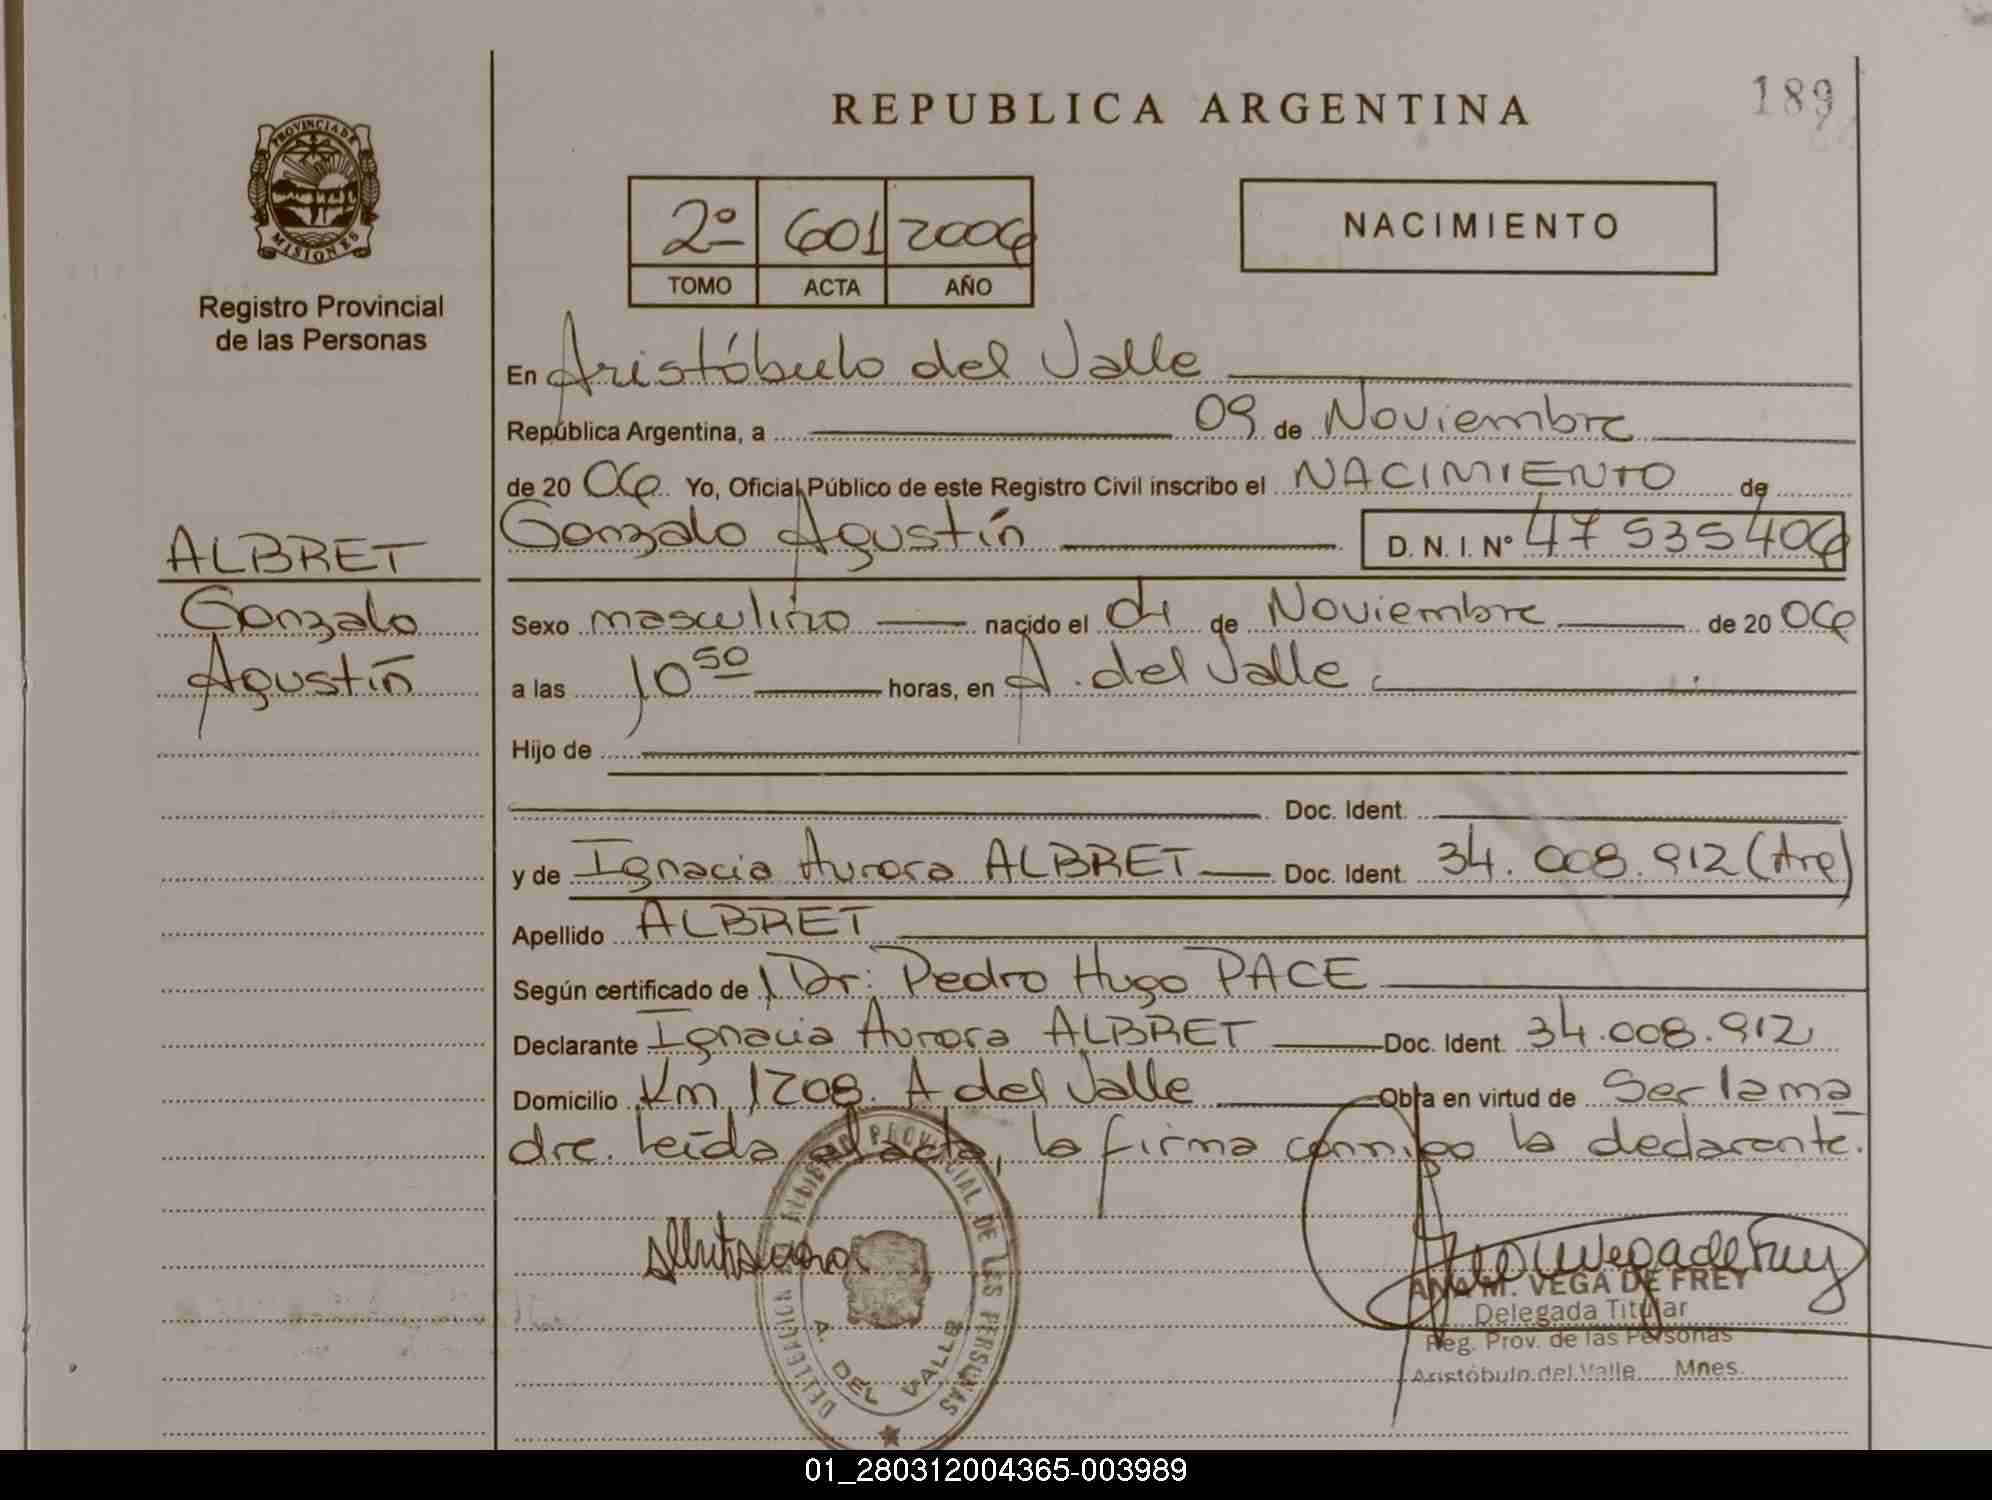 189
REPUBLICA ARGENTINA
PROVINCIA DE
MISIONES
Registro Provincial
de las Personas
2º 601 2006
TOMO ACTA AÑO
NACIMIENTO
En Aristóbulo del Valle
República Argentina, a 09 de Noviembre
de 20 06 Yo, Oficial Público de este Registro Civil inscribo el NACIMIENTO de
Gonzalo Agustín D. N. I. Nº 47 535 406
ALBRET
Gonzalo
Agustín
Sexo masculino nacido el 01 de Noviembre de 20 06
a las 10 50 horas, en A. del Valle
Hijo de
Doc. Ident.
y de Ignacia Aurora ALBRET Doc. Ident. 34.008.912 (Arg)
Apellido ALBRET
Según certificado de Dr: Pedro Hugo PACE
Declarante Ignacia Aurora ALBRET Doc. Ident. 34.008.912
Domicilio Km 1208. A del Valle Obra en virtud de Ser la ma
dre. Leída el acta, la firma conmigo la declarante.
PROVINCIAL DE LES PERSONAS
DELEGACION
A. DEL VALLE
ANA M. VEGA DE FREY
Delegada Titular
Reg. Prov. de las Personas
Aristóbulo del Valle Mnes.
01_280312004365-003989